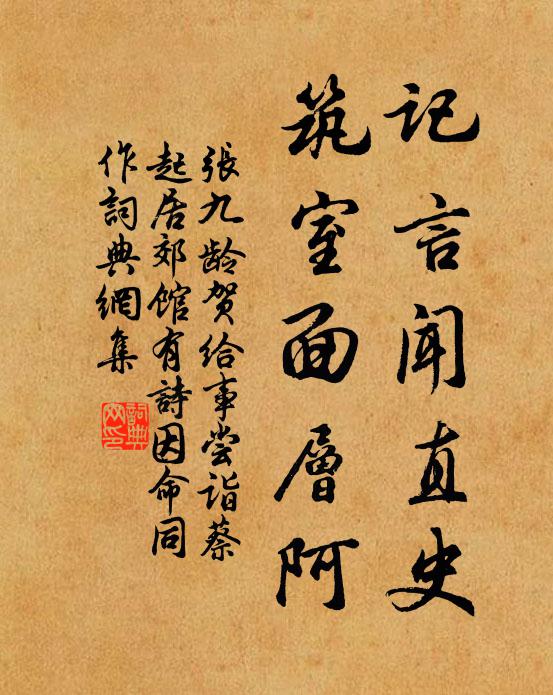 记言闻直史
筑室面层阿
張九龄贺给事尝诣蔡
起居郊馆有詩因命同
作詞典網集
詞典网印